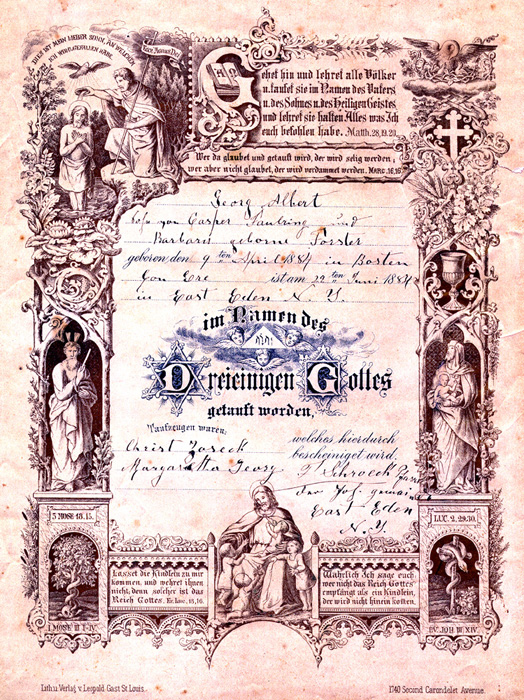 DIES IST MEIN LIEBER SOHN, AN WELCHEM
ICH WOHLGEFALLEN HABE.
Ecce Agnus Dei
Gehet hin und lehret alle Völker
u. taufet sie im Namen des Vaters
u. des Sohnes u. des Heiligen Geistes
und lehret sie halten Alles was Ich
euch befohlen habe. Matth. 28,19.20.
Wer da glaubet und getauft wird, der wird selig werden;
wer aber nicht glaubet, der wird verdammet werden. MARC. 16,16
Georg Albert
von Casper und
Barbara geborne Forster
geboren den 9ten April 1884 in Boston
Erie ist am 22ten Juni 1884
in East Eden N. Y.
im Namen des
Dreieinigen Gottes
getauft worden,
Taufzeugen waren:
welches hierdurch
bescheiniget wird.
Christ
Margaretha Georg
Schroeck
der
East Eden
N. Y.
3 MOSE 18.15.
LUC. 2, 29.30.
Lasset die Kindlein zu mir
kommen, und wehret ihnen
nicht, denn solcher ist das
Reich Gottes. Ev. Luc. 18,16.
Wahrlich Ich sage euch
wer nicht das Reich Gottes
empfängt als ein Kindlein,
der wird nicht hinein kommen.
1. MOSE III. I-IV.
EV. JOH III. XIV.
Lith. u. Verlag v. Leopold Gast St. Louis.
1740 Second Carondelet Avenue.